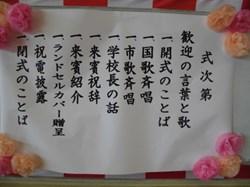 式次第
歓迎の言葉と歌
一開式のことば
一国歌斉唱
一市歌斉唱
一学校長の話
一来賓祝辞
一来賓紹介
一ランドセルカバー贈呈
一祝電披露
一閉式のことば